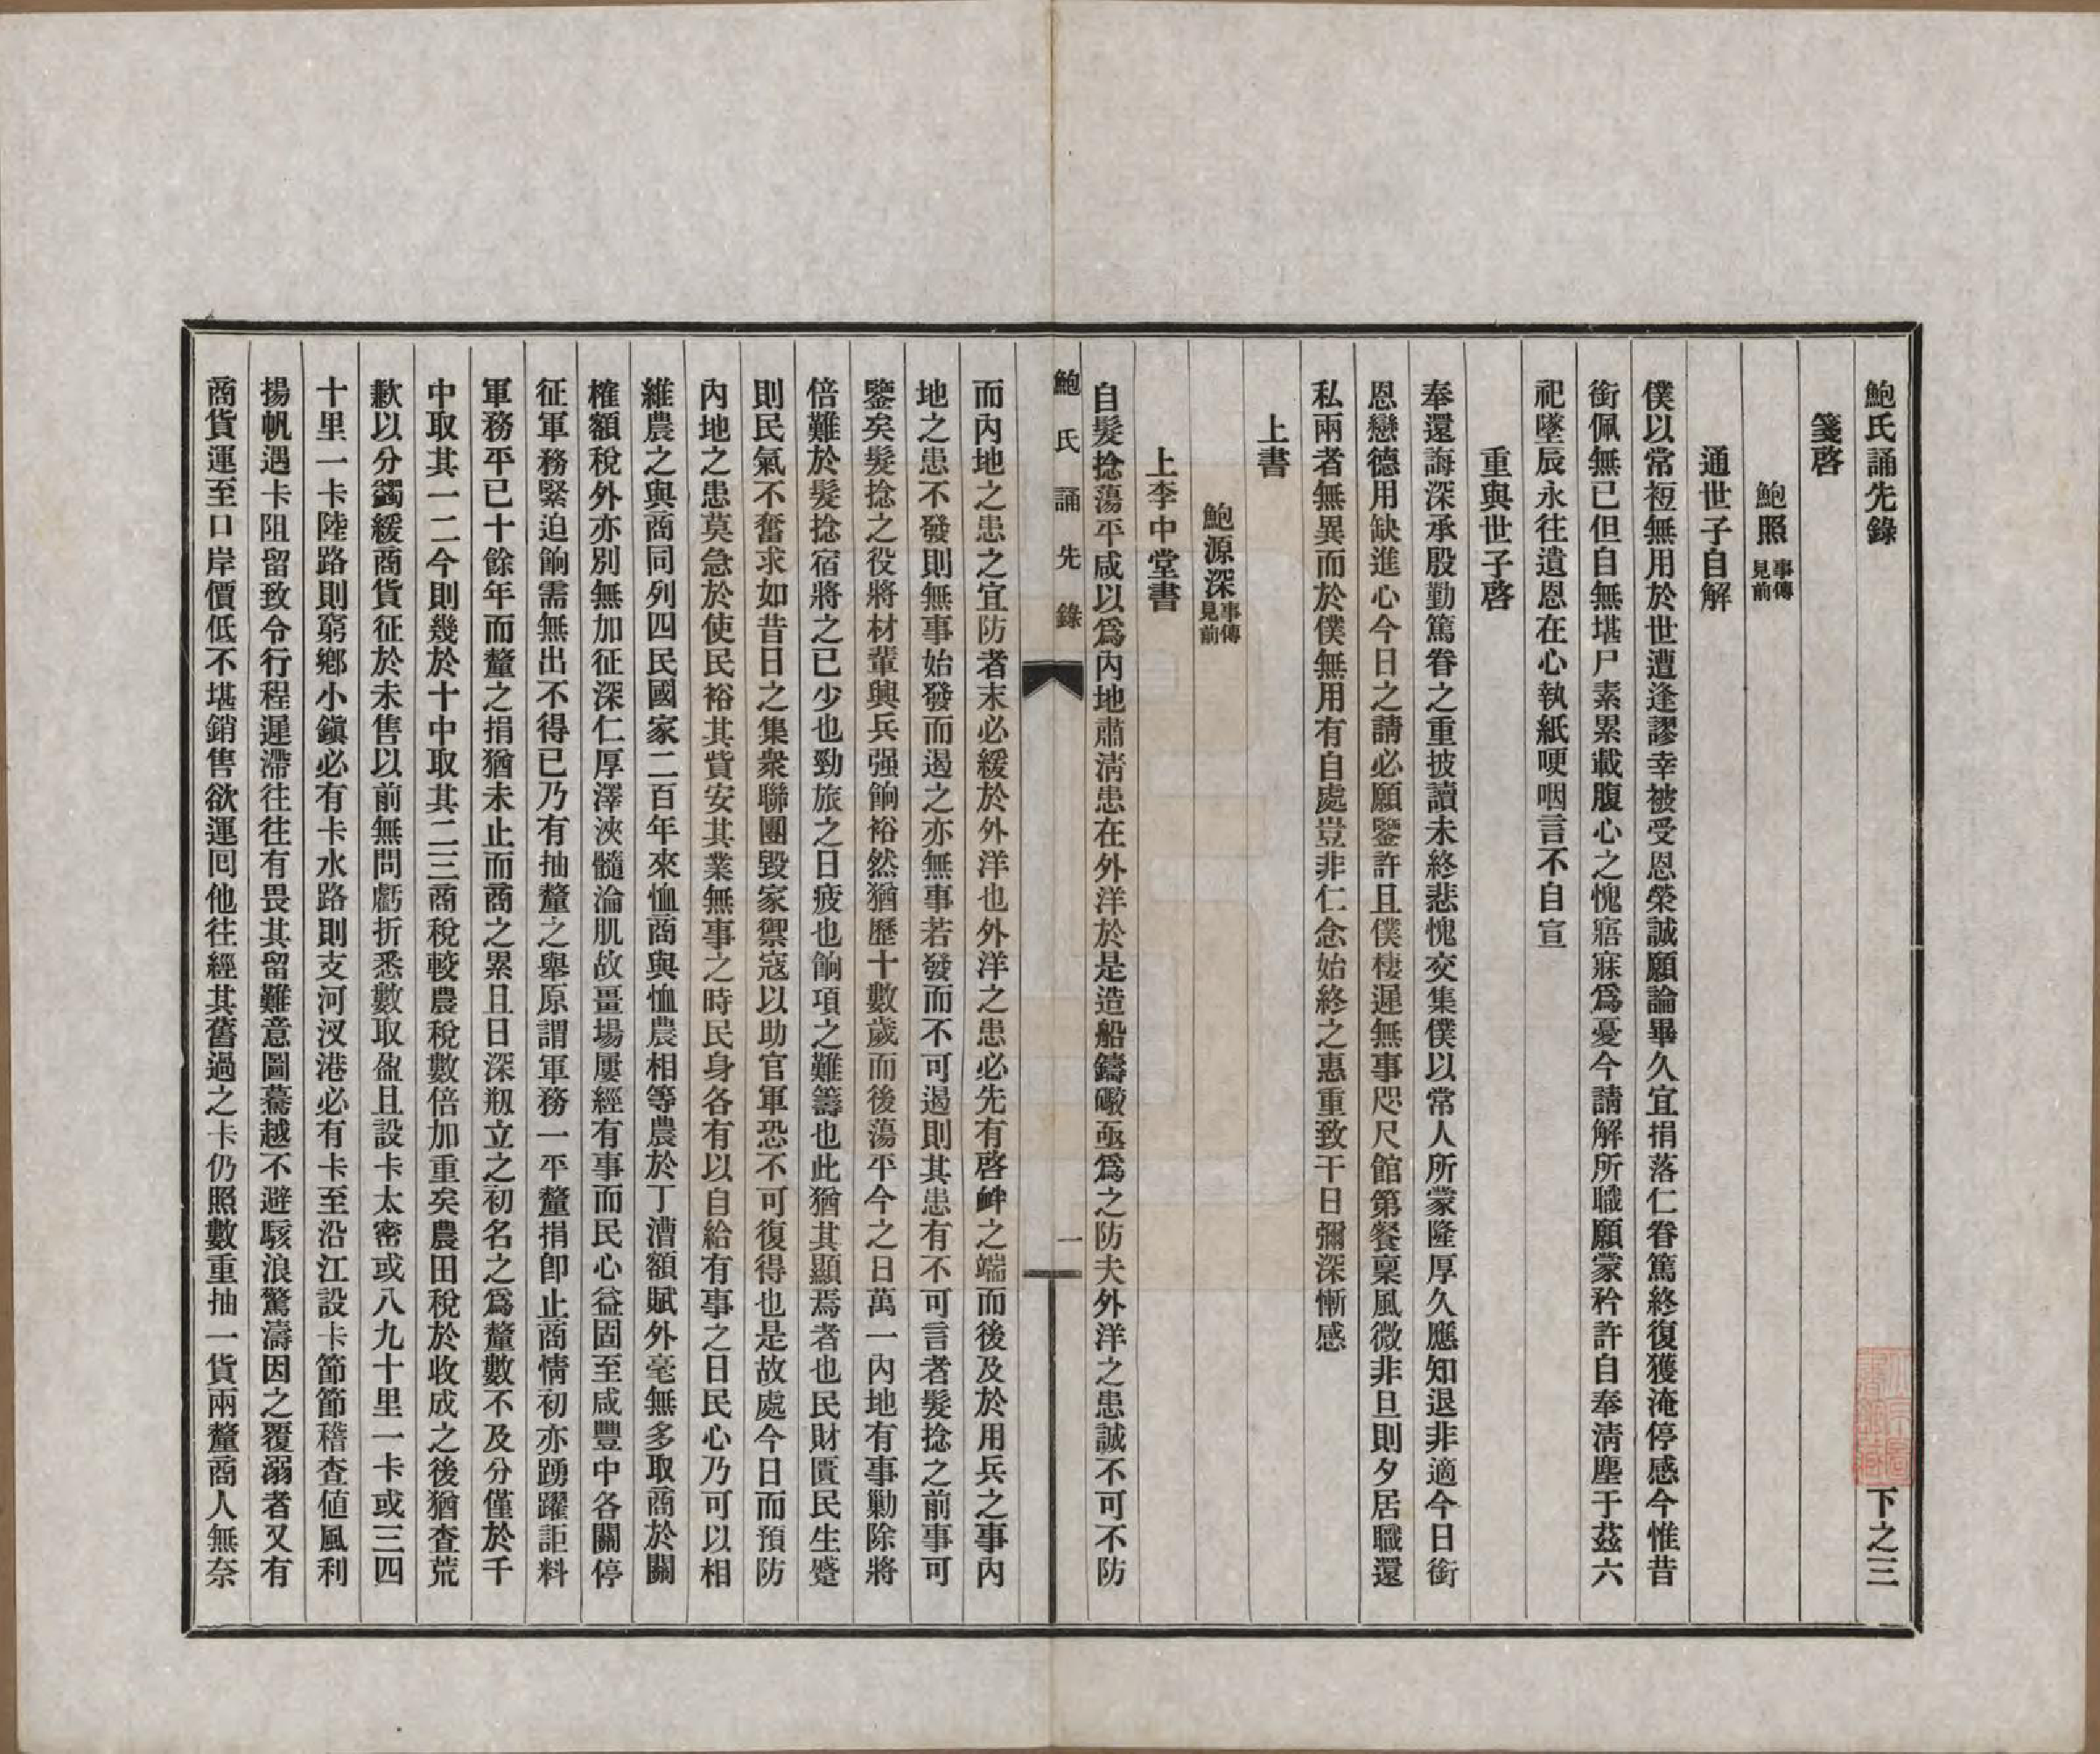 鮑氏誦先錄　下之三
箋啓
鮑照事傳見前
通世子自解
僕以常衼無用於世遭逢謬幸被受恩榮誠願論畢久宜捐落仁眷篤終復獲淹停感今惟昔
銜佩無已但自無堪尸素累載腹心之愧寤寐爲憂今請解所職願蒙矜許自奉淸塵于茲六
祀墜辰永往遺恩在心執紙哽咽言不自宣
重與世子啓
奉還誨深承殷勤篤眷之重披讀未終悲愧交集僕以常人所蒙隆厚久應知退非適今日銜
恩戀德用缺進心今日之請必願鑒許且僕棲遲無事咫尺館第餐稟風微非旦則夕居職還
私兩者無異而於僕無用有自處豈非仁念始終之惠重致干日彌深慚感
上書
鮑源深事傳見前
上李中堂書
自髮捻蕩平咸以爲內地肅淸患在外洋於是造船鑄礮亟爲之防夫外洋之患誠不可不防
鮑氏誦先錄　一
而內地之患之宜防者末必緩於外洋也外洋之患必先有啓衅之端而後及於用兵之事內
地之患不發則無事始發而遏之亦無事若發而不可遏則其患有不可言者髮捻之前事可
鑒矣髮捻之役將材輩興兵强餉裕然猶歷十數歲而後蕩平今之日萬一內地有事勦除將
倍難於髮捻宿將之已少也勁旅之日疲也餉項之難籌也此猶其顯焉者也民財匱民生蹙
則民氣不奮求如昔日之集衆聯團毀家禦寇以助官軍恐不可復得也是故處今日而預防
內地之患莫急於使民裕其貲安其業無事之時民身各有以自給有事之日民心乃可以相
維農之與商同列四民國家二百年來恤商與恤農相等農於丁漕額賦外毫無多取商於關
榷額稅外亦別無加征深仁厚澤浹髓淪肌故畺場屢經有事而民心益固至咸豐中各關停
征軍務緊迫餉需無出不得已乃有抽釐之舉原謂軍務一平釐捐卽止商情初亦踴躍詎料
軍務平已十餘年而釐之捐猶未止而商之累且日深剏立之初名之爲釐數不及分僅於千
中取其一二今則幾於十中取其二三商稅較農稅數倍加重矣農田稅於收成之後猶查荒
歉以分蠲緩商貨征於未售以前無問虧折悉數取盈且設卡太密或八九十里一卡或三四
十里一卡陸路則窮鄕小鎭必有卡水路則支河汊港必有卡至沿江設卡節節稽查値風利
揚帆遇卡阻留致令行程遲滯往往有畏其留難意圖驀越不避駭浪驚濤因之覆溺者又有
商貨運至口岸價低不堪銷售欲運囘他往經其舊過之卡仍照數重抽一貨兩釐商人無奈